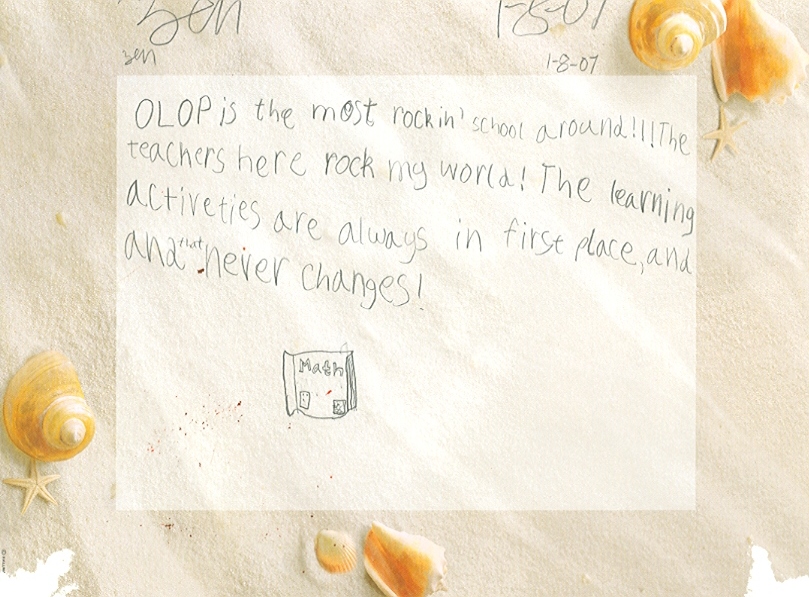 Ben 1-8-07
Ben 1-8-07
OLOP is the most rockin' school around!!!! The
teachers here rock my world! The learning
activeties are always in first place, and
and that never changes!
Math